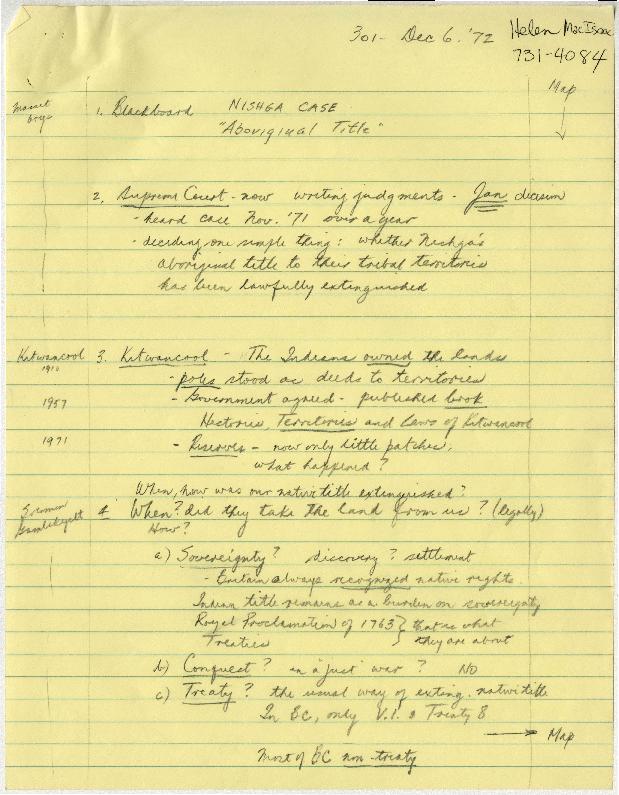 301- Dec 6. '72
Helen MacIsaac
731-4084
Map
Masset
boys
1. Blackboard NISHGA CASE
"Aboriginal Title"
2. Supreme Court - now writing judgments - Jan decision
- heard case Nov. '71 over a year
- deciding one simple thing: whether Nishga's
aboriginal title to their tribal territories
has been lawfully extinguished
Kitwancool
1910
3. Kitwancool - The Indians owned the lands
- poles stood as deeds to territories
1957
- Government agreed - published book
Histories, Territories and Laws of Kitwancool
1971
- Reserves - now only little patches,
what happened?
When, how was our native title extinguished?
4 When? did they take the land from us? (legally)
How?
a) Sovereignty? discovery? settlement
- Britain always recognized native rights.
Indian title remains as a burden on sovereignty
Royal Proclamation of 1763 } that is what
Treaties } they are about
b) Conquest? in a 'just' war? NO
c) Treaty? the usual way of exting. native title
In BC, only V.I. & Treaty 8
→ Map
Most of BC non-treaty